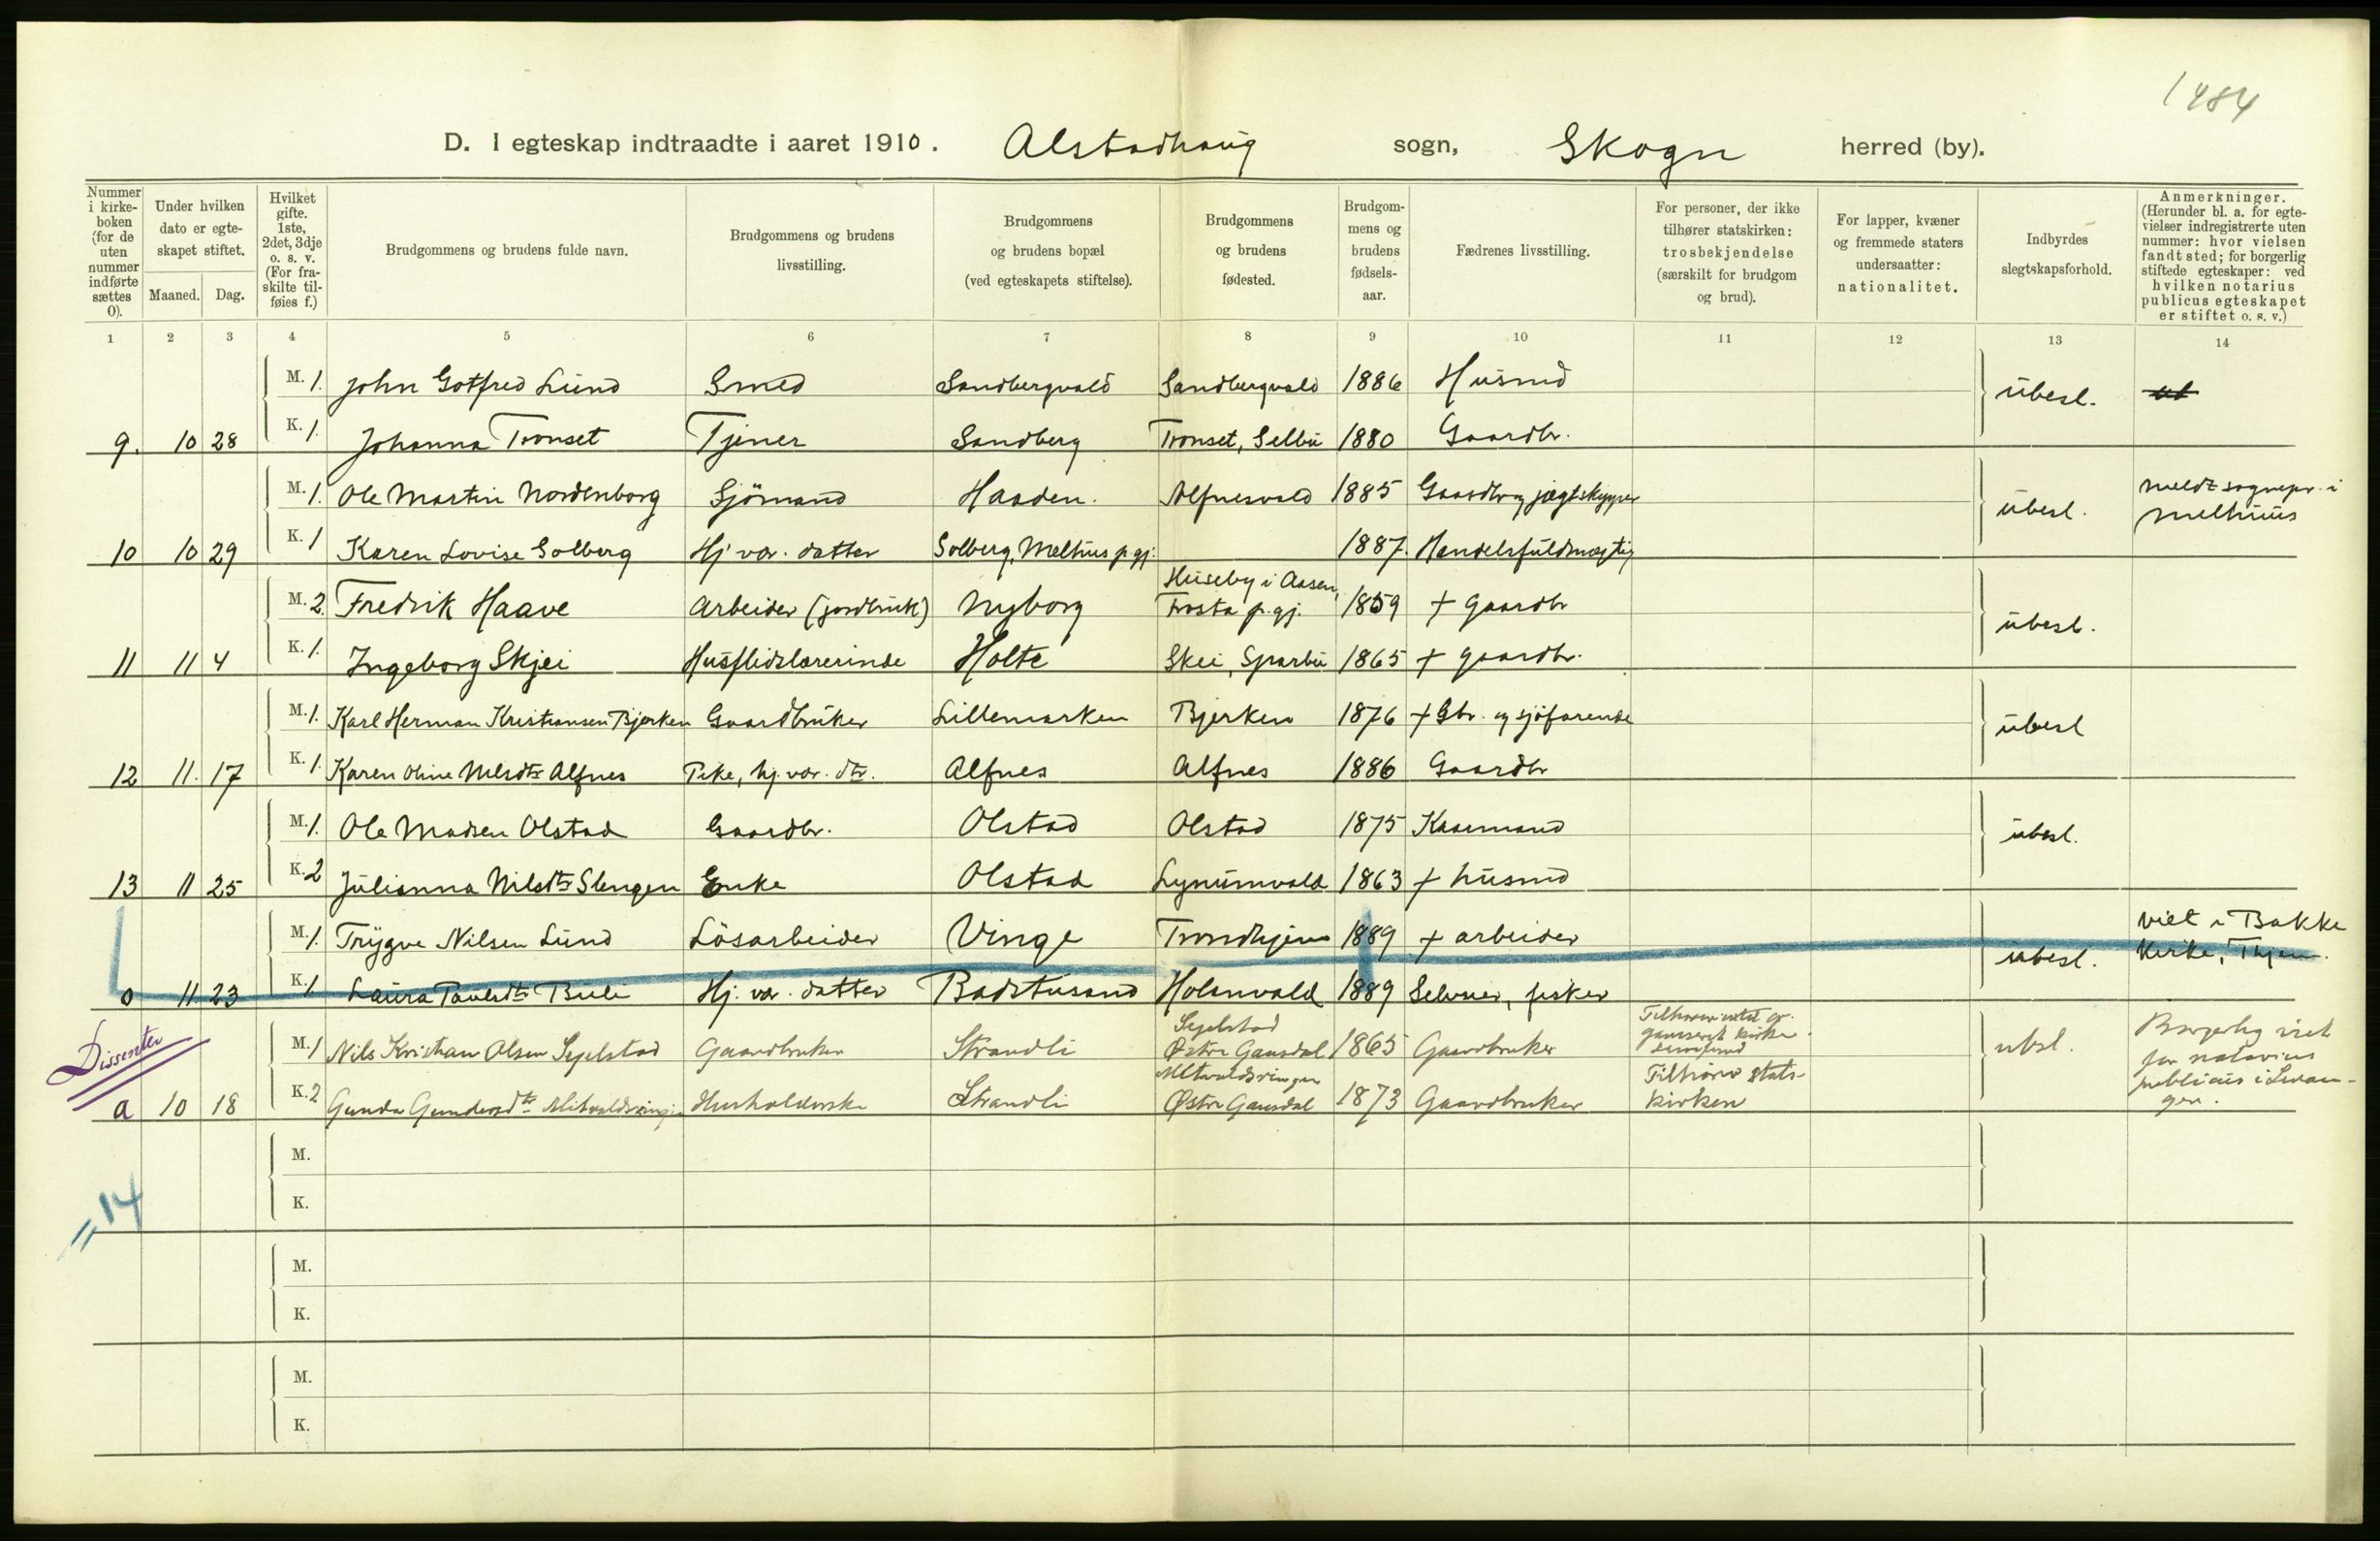 1484
D. I egteskap indtraadte i aaret 1910. Alstadhaug sogn, Skogn herred (by).
Nummer i kirke- boken (for de uten nummer indførte sættes 0).
Under hvilken dato er egte- skapet stiftet.
Maaned. Dag.
Hvilket gifte. 1ste, 2det, 3dje o. s. v. (For fra- skilte til- føies f.)
Brudgommens og brudens fulde navn.
Brudgommens og brudens livsstilling.
Brudgommens og brudens bopæl (ved egteskapets stiftelse).
Brudgommens og brudens fødested.
Brudgom- mens og brudens fødsels- aar.
Fædrenes livsstilling.
For personer, der ikke tilhører statskirken: trosbekjendelse (særskilt for brudgom og brud).
For lapper, kvæner og fremmede staters undersaatter: nationalitet.
Indbyrdes slegtskapsforhold.
Anmerkninger. (Herunder bl. a. for egte- vielser indregistrerte uten nummer: hvor vielsen fandt sted; for borgerlig stiftede egteskaper: ved hvilken notarius publicus egteskapet er stiftet o. s. v.)
1 2 3 4 5 6 7 8 9 10 11 12 13 14
M. 1. John Gotfred Lund Smed Sandbergvald Sandbergvald 1886 Husmd ubesl.
9. 10 28 K. 1. Johanna Tronset Tjener Sandberg Tronset, Selbu 1880 Gaardbr.
M. 1. Ole Martin Nordenborg Sjömand Haaden. Alfnesvald 1885 Gaardbr og jægtskypper ubesl. meldt sognepr. i Melhuus
10 10 29 K. 1 Karen Lovise Solberg Hj. vær. datter Solberg, Melhus p.gj. 1887. Handelsfuldmægtig
M. 2. Fredrik Haave Arbeider (jordbruk) Nyborg Huseby i Aasen, Frosta p.gj. 1859 + gaardbr ubesl.
11 11 4 K. 1. Ingeborg Skjei Husflidslærerinde Holte Skei, Sparbu 1865 + gaardbr.
M. 1. Karl Herman Kristiansen Bjerken Gaardbruker Lillemarken Bjerken 1876 + Gbr. og sjöfarende ubesl
12 11. 17 K. 1. Karen Oline Nilsdtr Alfnes Pike, hj. vær. dtr. Alfnes Alfnes 1886 Gaardbr
M. 1. Ole Madsen Olstad Gaardbr. Olstad Olstad 1875 Kaarmand ubesl.
13 11 25 K. 2 Julianna Nilsdtr Slengen Enke Olstad Lynumvald 1863 + husmd
M. 1. Trygve Nilsen Lund Lösarbeider Vinge Trondhjem 1889 + arbeider ubesl. viet i Bakke Kirke, Thjem.
0 11 23 K. 1 Laura Paulsdtr Buli Hj. vær. datter Badstusand Holanvald 1889 Selveier, fisker
Dissenter
M. 1 Nils Kristian Olsen Segelstad Gaardbruker Strandli Segelstad Østre Gausdal 1865 Gaardbruker ubsl. Borgerlig viet for notarius publicus i Levan- ger.
a 10 18 K. 2 Gunda Gundersdtr Husholderske Strandli Østre Gausdal 1873 Gaardbruker Tilhører stats- kirken
M.
K.
= 14
M.
K.
M.
K.